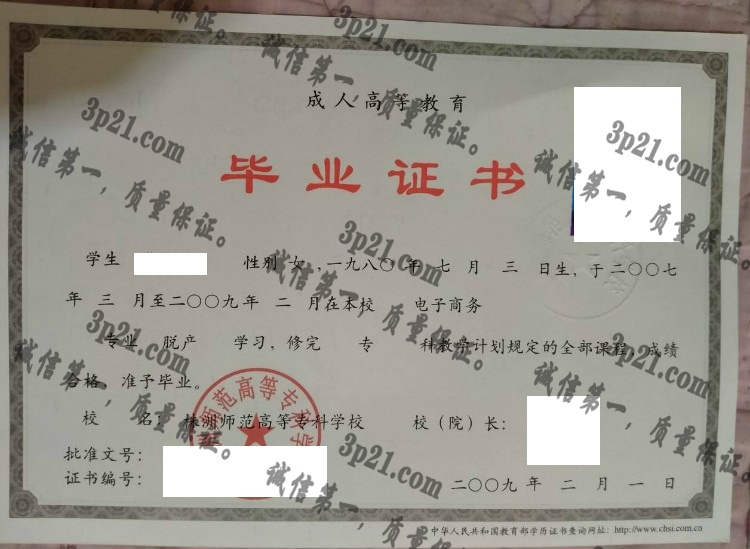 成人高等教育
毕业证书
学生 性别 女,一九八〇年 七 月 三 日生,于二〇〇七
年 三 月至二〇〇九年 二 月在本校 电子商务
专业 脱产 学习,修完 专 科教学计划规定的全部课程,成绩
合格,准予毕业。
校 名: 株洲师范高等专科学校 校(院)长:
批准文号:
证书编号:
二〇〇九 年 二 月 一 日
中华人民共和国教育部学历证书查询网址: http://www.chsi.com.cn
师范高等专科学
3p21.com
诚信第一,质量保证。
3p21.com
诚信第一,质量保证。
3p21.com
诚信第一,质量保证。
3p21.com
诚信第一,质量保证。
3p21.com
诚信第一,质量保证。
3p21.com
诚信第一,质量保证。
3p21.com
诚信第一,质量保证。
3p21.com
诚信第一,质量保证。